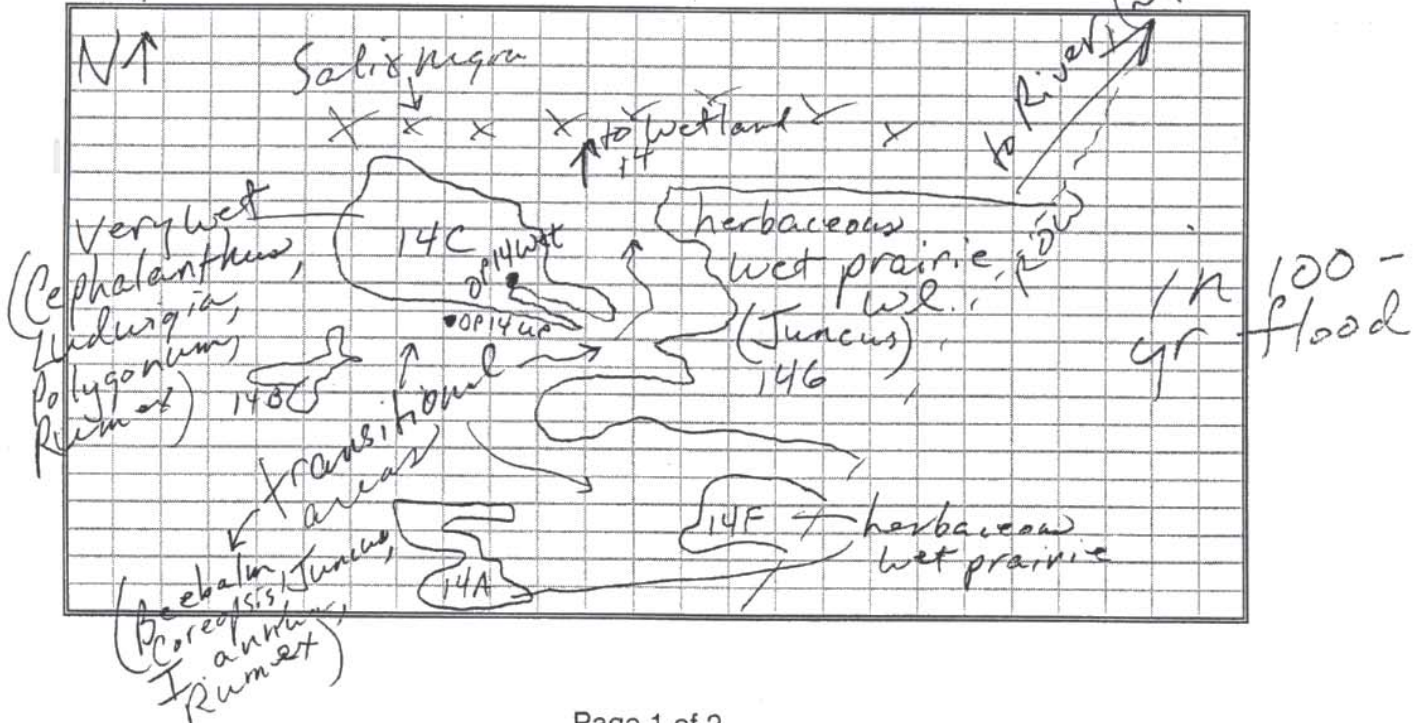 N↑
Salix nigra
↑ to Wetland
14
to River
very wet
(Cephalanthus,
Ludwigia,
Polygonum,
Rumex)
14C
OP14wet
OP14up
14B
herbaceous
wet prairie,
wl.
(Juncus)
14G
ROW
in 100-
yr flood
transitional
areas
(Beebalm
Coreopsis, Juncus,
Rumex)
14A
14F
herbaceous
wet prairie
Page 1 of 2